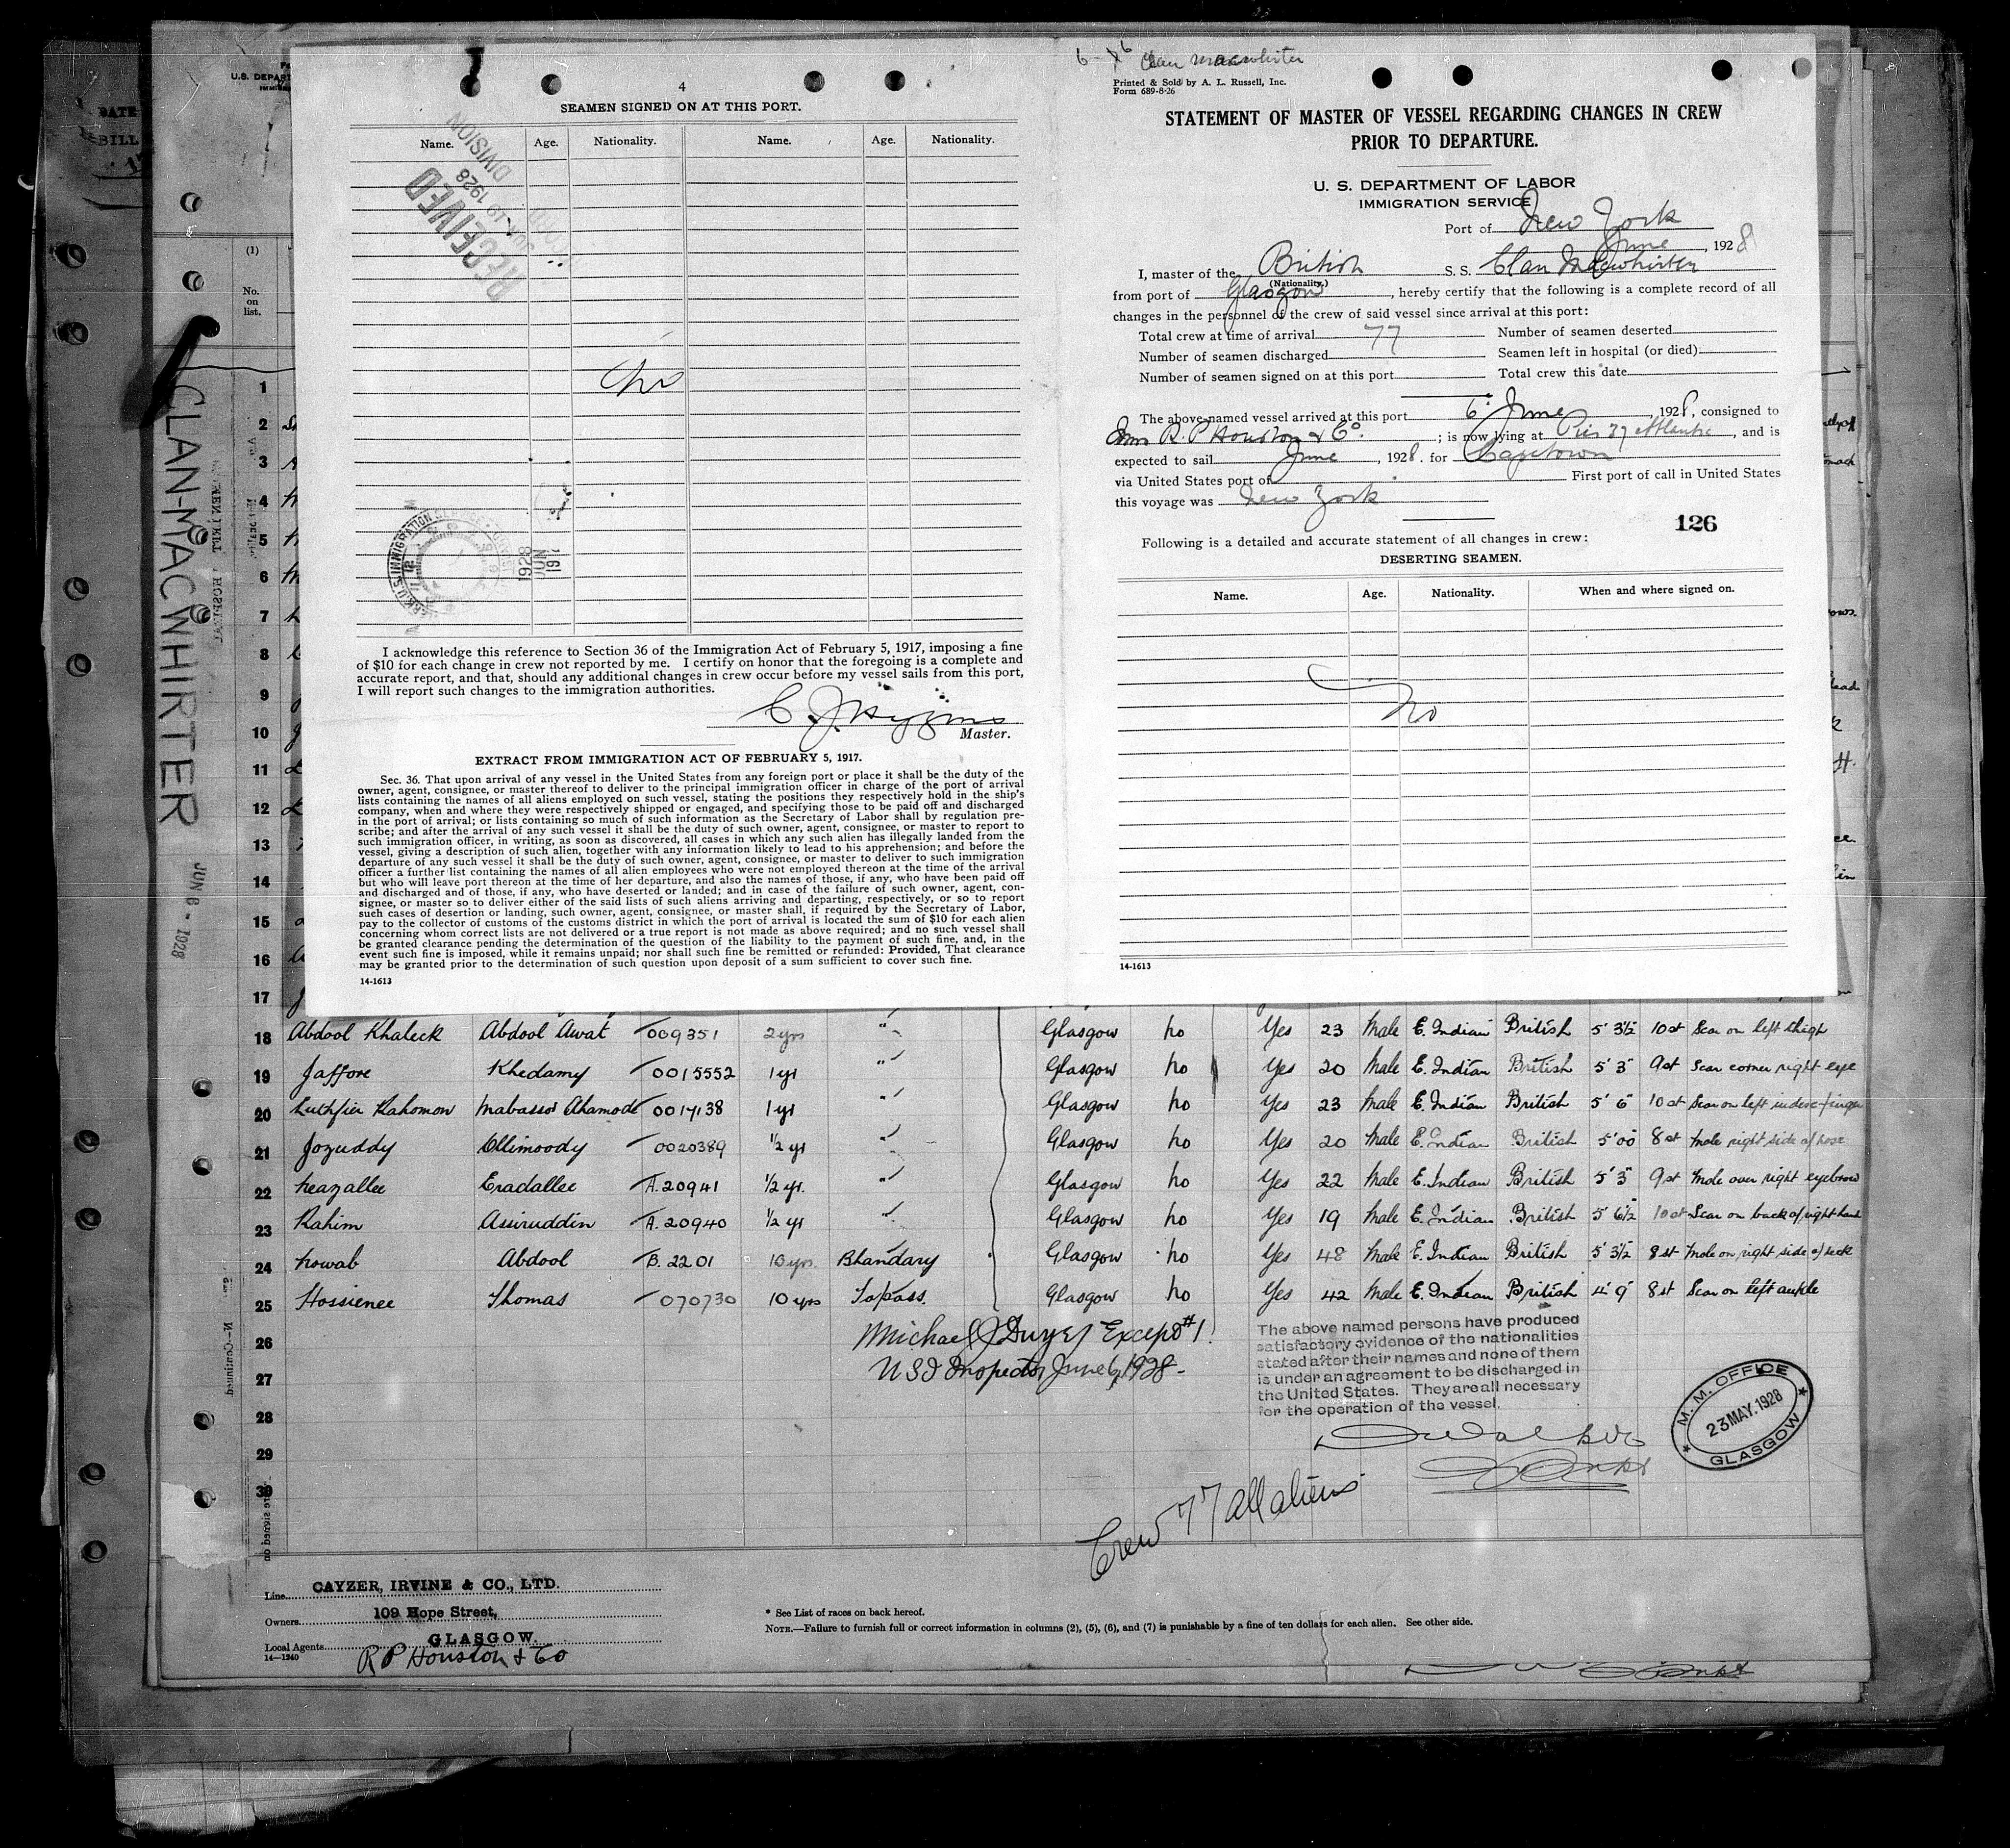 4
SEAMEN SIGNED ON AT THIS PORT.
Name. Age. Nationality. Name. Age. Nationality.
RECEIVED
1928
DIVISION
No
U.S. IMMIGRATION
1928
JUN
I acknowledge this reference to Section 36 of the Immigration Act of February 5, 1917, imposing a fine
of $10 for each change in crew not reported by me. I certify on honor that the foregoing is a complete and
accurate report, and that, should any additional changes in crew occur before my vessel sails from this port,
I will report such changes to the immigration authorities.
C. J. Higgins
Master.
EXTRACT FROM IMMIGRATION ACT OF FEBRUARY 5, 1917.
Sec. 36. That upon arrival of any vessel in the United States from any foreign port or place it shall be the duty of the
owner, agent, consignee, or master thereof to deliver to the principal immigration officer in charge of the port of arrival
lists containing the names of all aliens employed on such vessel, stating the positions they respectively hold in the ship's
company, when and where they were respectively shipped or engaged, and specifying those to be paid off and discharged
in the port of arrival; or lists containing so much of such information as the Secretary of Labor shall by regulation pre-
scribe; and after the arrival of any such vessel it shall be the duty of such owner, agent, consignee, or master to report to
such immigration officer, in writing, as soon as discovered, all cases in which any such alien has illegally landed from the
vessel, giving a description of such alien, together with any information likely to lead to his apprehension; and before the
departure of any such vessel it shall be the duty of such owner, agent, consignee, or master to deliver to such immigration
officer a further list containing the names of all alien employees who were not employed thereon at the time of the arrival
but who will leave port thereon at the time of her departure, and also the names of those, if any, who have been paid off
and discharged and of those, if any, who have deserted or landed; and in case of the failure of such owner, agent, con-
signee, or master so to deliver either of the said lists of such aliens arriving and departing, respectively, or so to report
such cases of desertion or landing, such owner, agent, consignee, or master shall, if required by the Secretary of Labor,
pay to the collector of customs of the customs district in which the port of arrival is located the sum of $10 for each alien
concerning whom correct lists are not delivered or a true report is not made as above required; and no such vessel shall
be granted clearance pending the determination of the question of the liability to the payment of such fine, and, in the
event such fine is imposed, while it remains unpaid; nor shall such fine be remitted or refunded: Provided, That clearance
may be granted prior to the determination of such question upon deposit of a sum sufficient to cover such fine.
14-1613
Clan Macwhirter
Printed & Sold by A. L. Russell, Inc.
Form 689-8-26
STATEMENT OF MASTER OF VESSEL REGARDING CHANGES IN CREW
PRIOR TO DEPARTURE.
U. S. DEPARTMENT OF LABOR
IMMIGRATION SERVICE
Port of New York
June, 1928
I, master of the British S. S. Clan Macwhirter
(Nationality.)
from port of Glasgow, hereby certify that the following is a complete record of all
changes in the personnel of the crew of said vessel since arrival at this port:
Total crew at time of arrival 77 Number of seamen deserted
Number of seamen discharged Seamen left in hospital (or died)
Number of seamen signed on at this port Total crew this date
The above-named vessel arrived at this port 6 June, 1928, consigned to
R. P Houston & Co. ; is now lying at Pier 37 Atlantic, and is
expected to sail June, 1928. for Capetown
via United States port of First port of call in United States
this voyage was New York
126
Following is a detailed and accurate statement of all changes in crew:
DESERTING SEAMEN.
Name. Age. Nationality. When and where signed on.
No
14-1613
U.S. DEPART
(1)
No.
on
list.
CLAN-MACWHIRTER
JUN 6 - 1928
1
2
3
4
5
6
7
8
9
10
11
12
13
14
15
16
17
18 Abdool Khaleck Abdool Awat 009351 2 yrs " Glasgow no Yes 23 Male E. Indian British 5' 3½ 10 st Scar on left thigh
19 Jaffore Khedamy 0015552 1 yr " Glasgow no Yes 20 Male E. Indian British 5' 3" 9 st Scar corner right eye
20 Luthfur Rahomon Mabassor Ahamode 0017138 1 yr " Glasgow no Yes 23 Male E. Indian British 5' 6" 10 st Scar on left index finger
21 Jozuddy Ollimoody 0020389 ½ yr " Glasgow no Yes 20 Male E. Indian British 5' 00 8 st Mole right side of nose
22 Neazallee Eradallee A.20941 ½ yr. " Glasgow no Yes 22 Male E. Indian British 5' 3" 9 st Mole over right eyebrow
23 Rahim Asiruddin A.20940 ½ yr " Glasgow no Yes 19 Male E. Indian British 5' 6½ 10 st Scar on back of right hand
24 Nowab Abdool B.2201 10 yrs. Bhandary Glasgow no Yes 48 Male E. Indian British 5' 3½ 8 st Mole on right side of neck
25 Hossienee Thomas 070730 10 yrs Topass. Glasgow no Yes 42 Male E. Indian British 4' 9" 8 st Scar on left ankle
26
27
28
29
30
Michael J Dwyer Except #1
U S I Inspector June 6, 1928-
The above named persons have produced
satisfactory evidence of the nationalities
stated after their names and none of them
is under an agreement to be discharged in
the United States. They are all necessary
for the operation of the vessel.
M. M. OFFICE
23 MAY. 1928
GLASGOW
Crew 77 all aliens
Line CAYZER, IRVINE & CO., LTD.
Owners 109 Hope Street,
Local Agents GLASGOW.
R P Houston & Co
14-1240
* See List of races on back hereof.
NOTE.—Failure to furnish full or correct information in columns (2), (5), (6), and (7) is punishable by a fine of ten dollars for each alien. See other side.